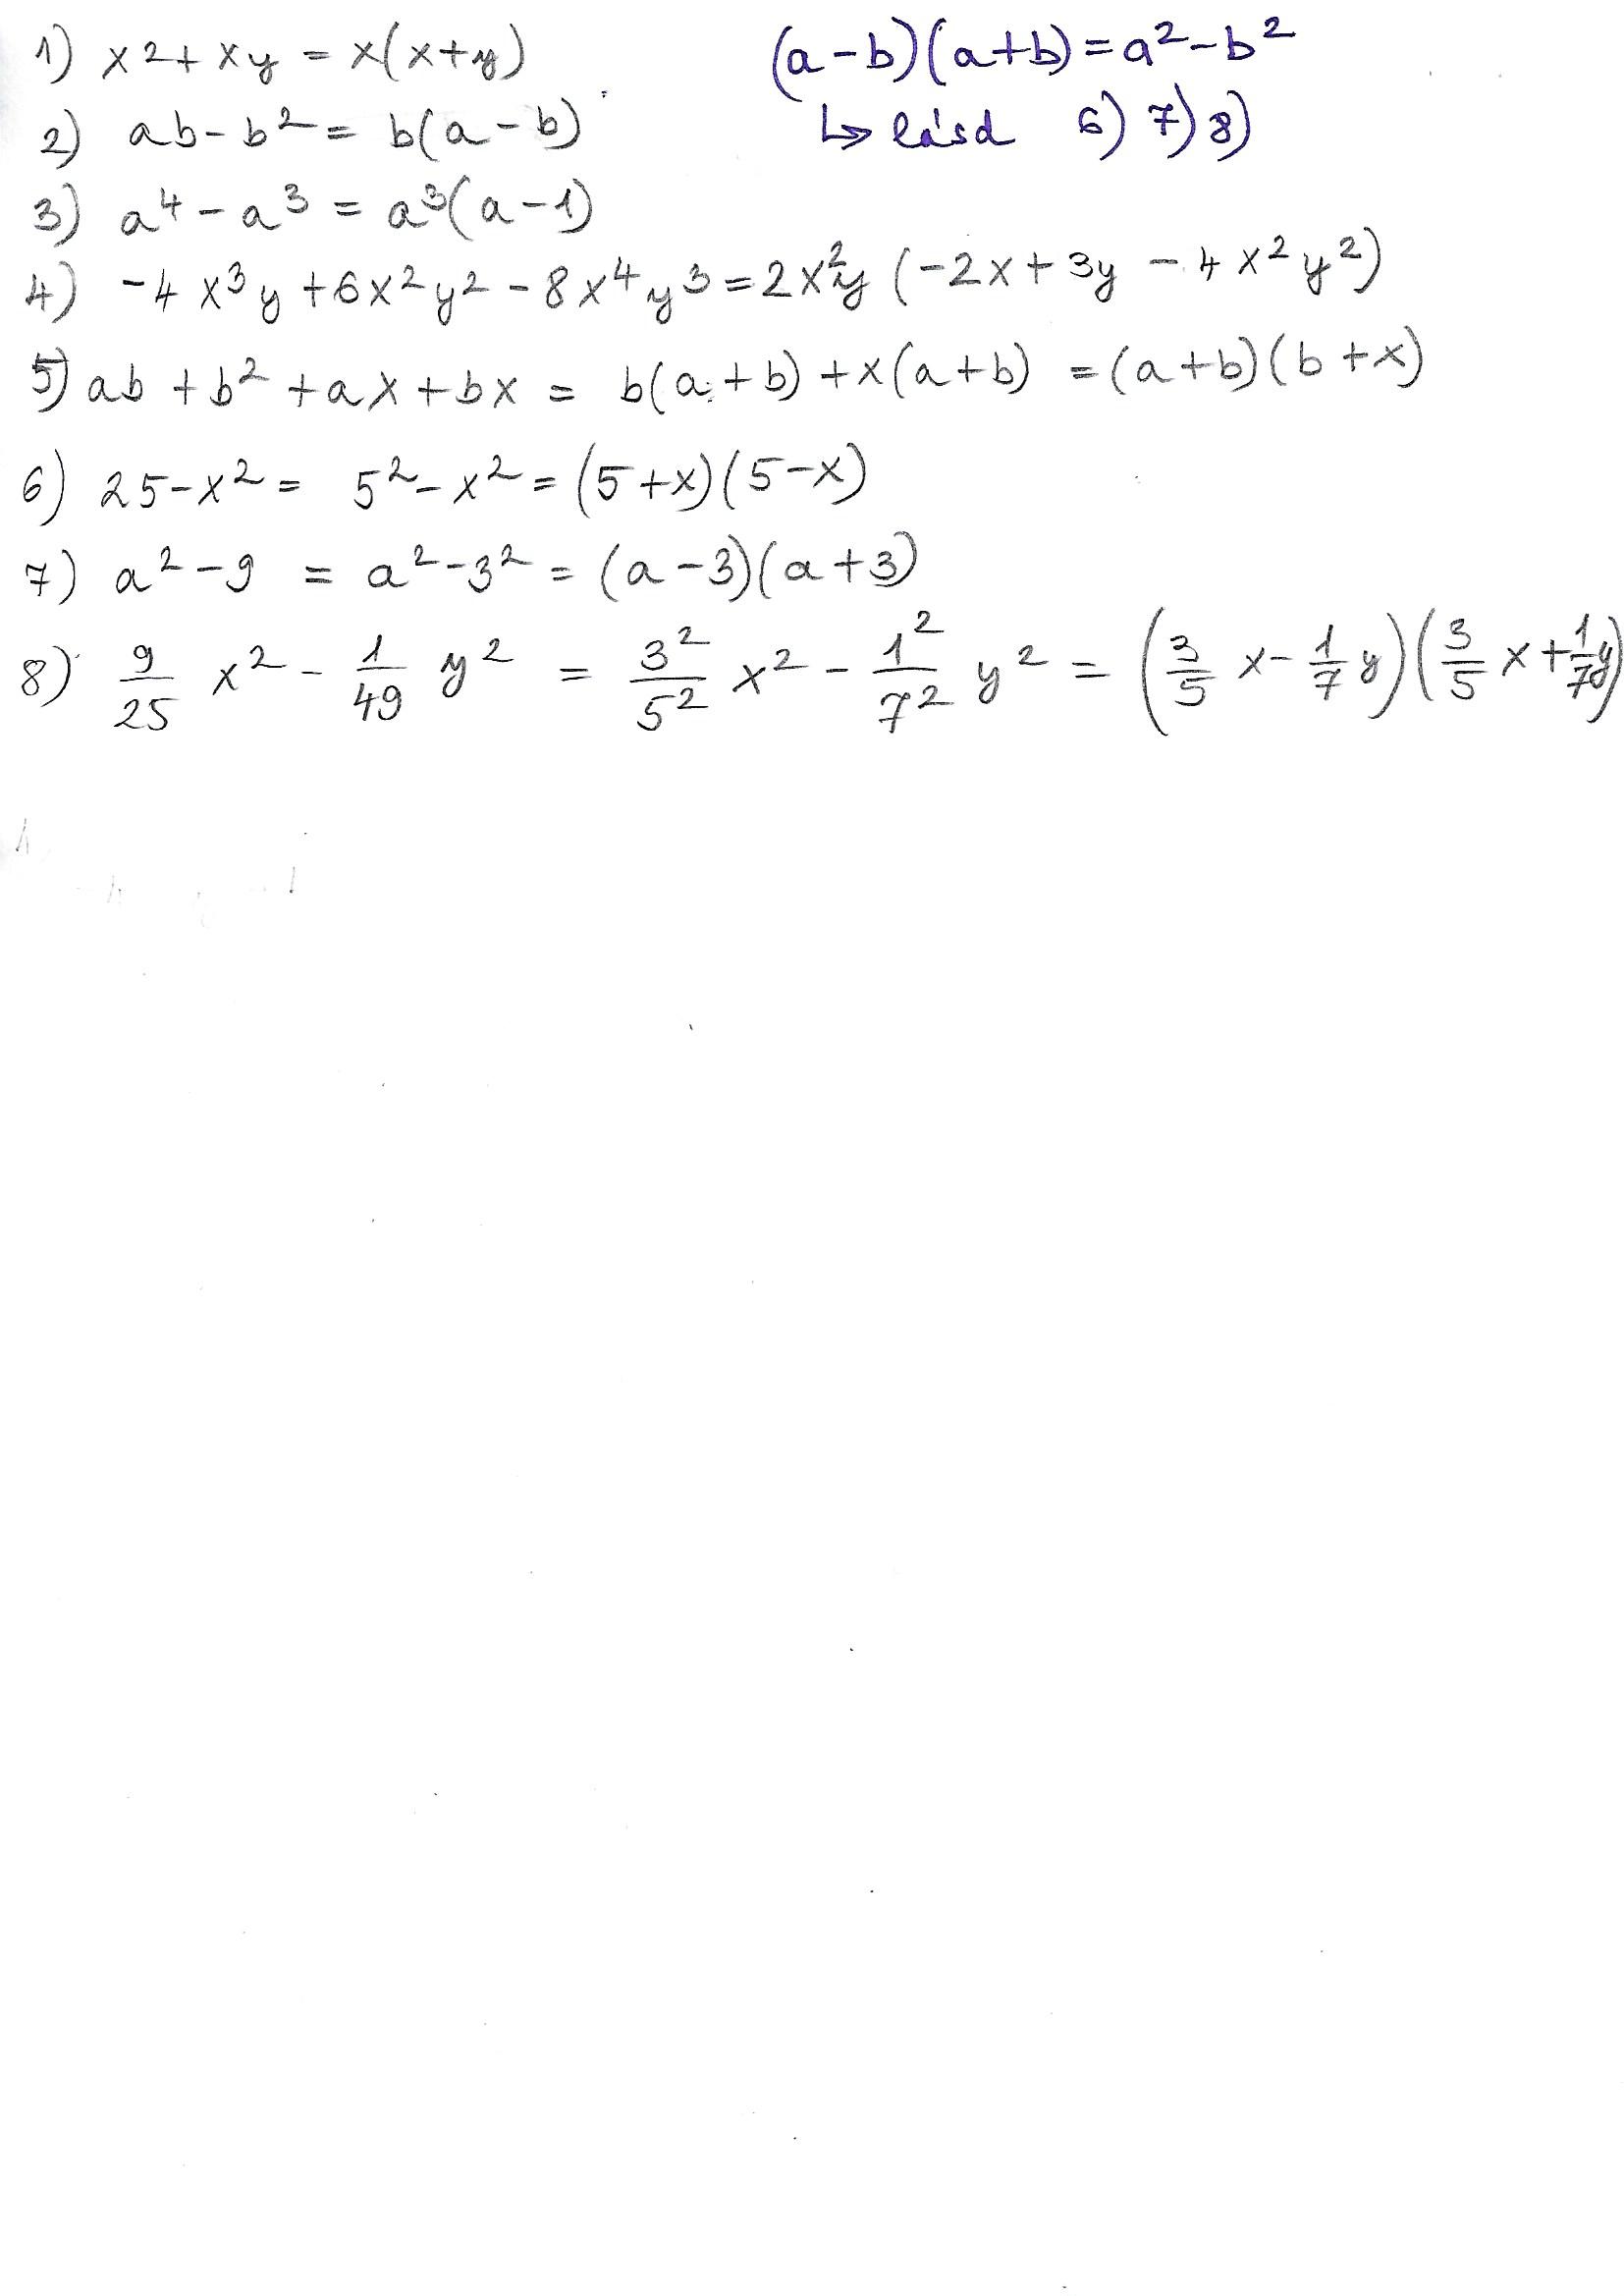 1) x2+xy = x(x+y)
(a-b)(a+b)=a²-b²
↳ lásd 6) 7) 8)
2) ab-b² = b(a-b)
3) a⁴-a³ = a³(a-1)
4) -4x³y+6x²y²-8x⁴y³=2x²y (-2x+3y-4x²y²)
5) ab+b²+ax+bx = b(a+b)+x(a+b) =(a+b)(b+x)
6) 25-x² = 5²-x² = (5+x)(5-x)
7) a²-9 = a²-3² = (a-3)(a+3)
8) 9/25 x² - 1/49 y² = 3²/5² x² - 1²/7² y² = (3/5 x - 1/7 y)(3/5 x + 1/7 y)